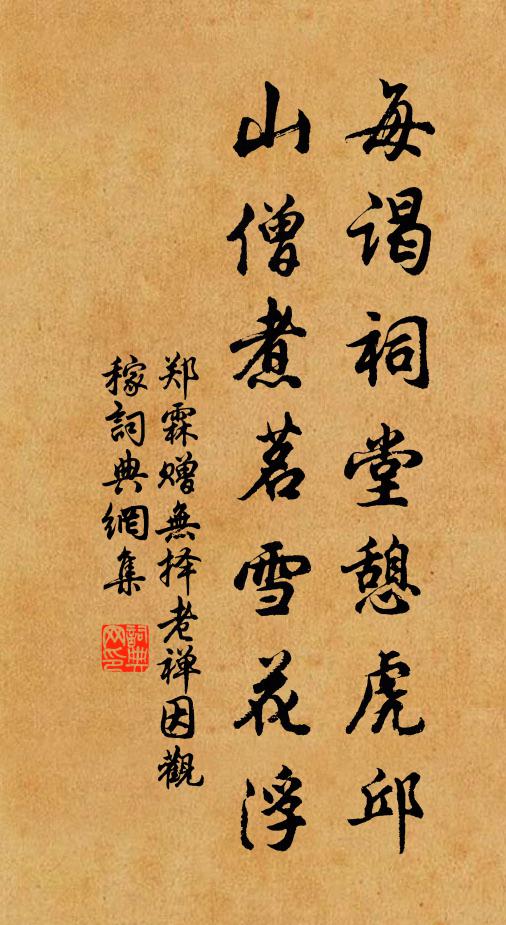 每谒祠堂憩虎邱
山僧煮茗雪花浮
郑霖赠無择老禅因觀
稼詞典網集
詞典网印